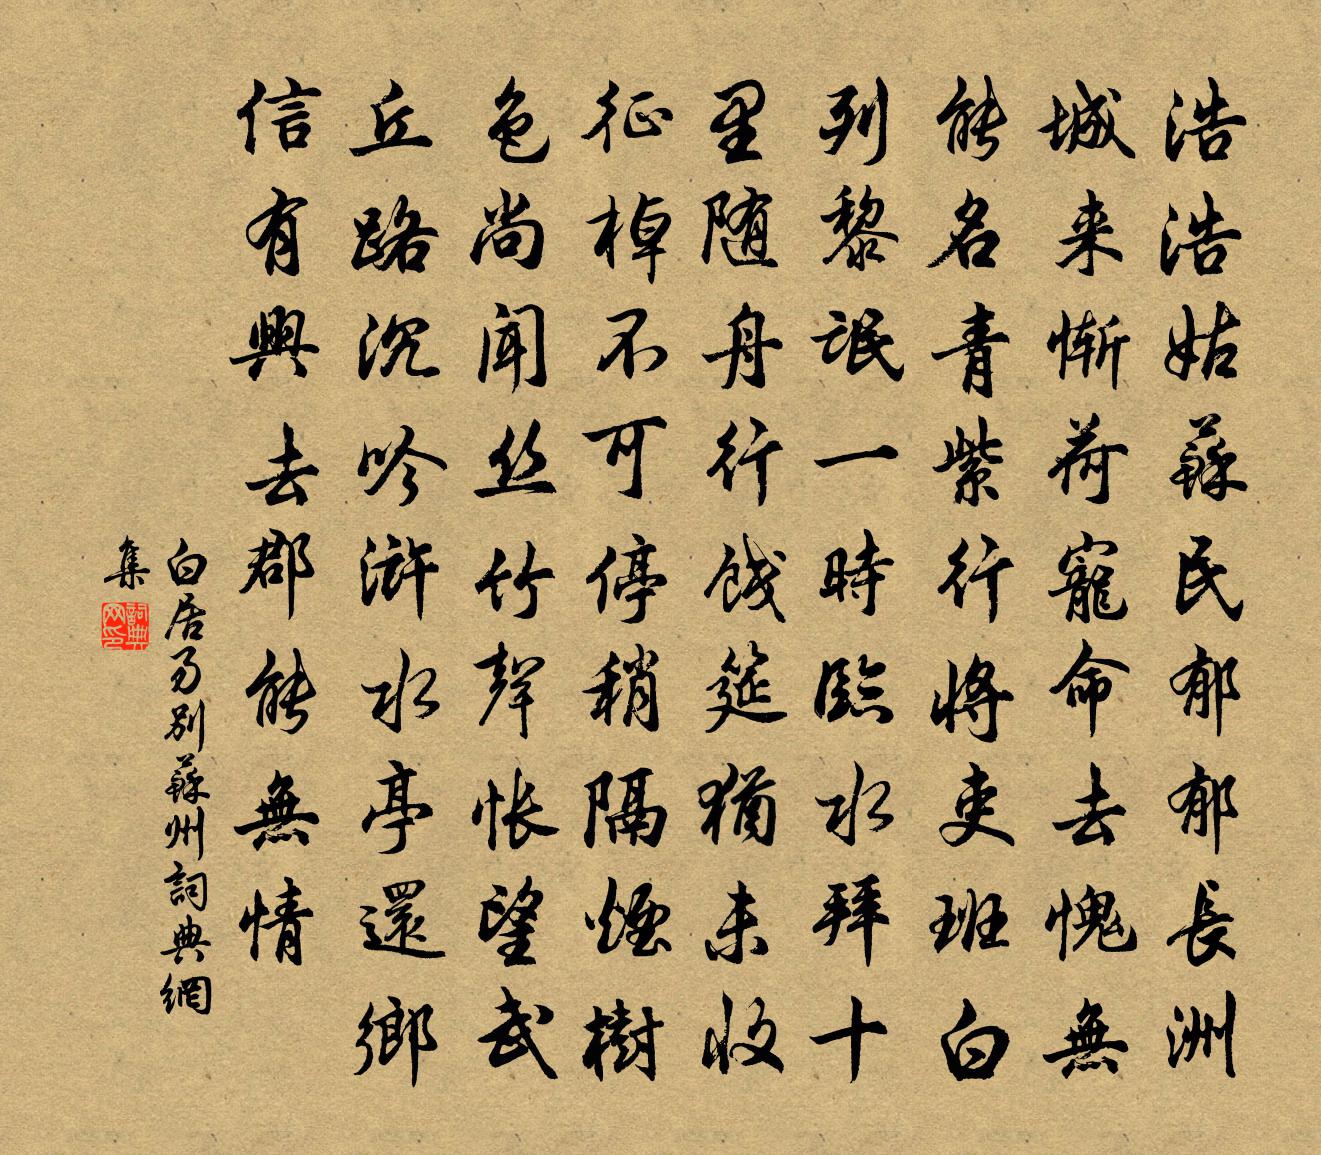 浩浩姑蘇民郁郁長洲
城来慚荷寵命去愧無
能名青紫行將吏班白
列黎氓一時臨水拜十
里随舟行餞筵猶未收
征棹不可停稍隔煙樹
色尚聞丝竹聲悵望武
丘路沉吟滸水亭還鄉
信有興去郡能無情
白居易别蘇州詞典網
集
詞典网印